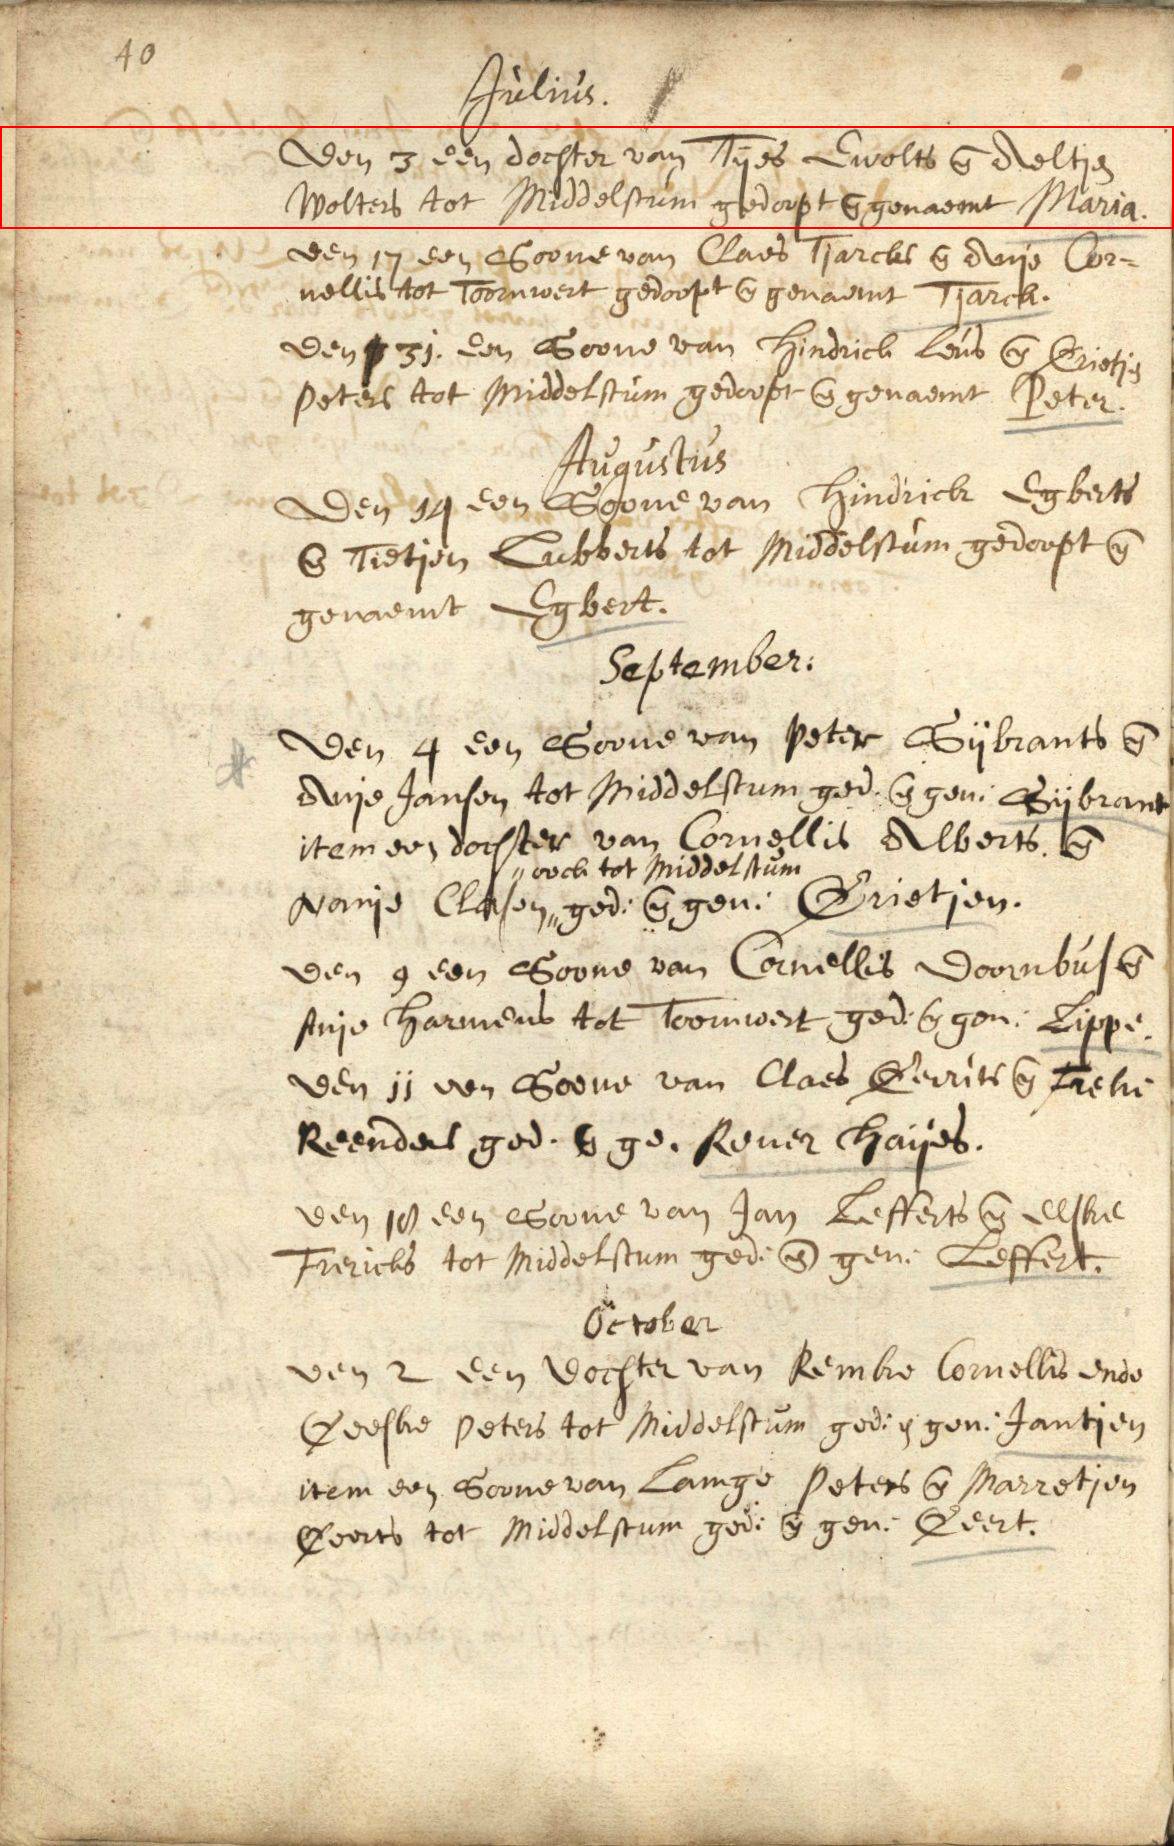 40
Julius.
Den 3 een dochter van Tijes Ewolts en Aeltjen
Wolters tot Middelstum gedoopt en genaemt Maria.
den 17 een Soone van Claes Tjarcks en Anje Cor-
nellis tot Toornwert gedoopt en genaemt Tjarck.
den 31. een Soone van Hindrick Leus en Grietjen
Peters tot Middelstum gedoopt en genaemt Peter.
Augustus
Den 14 een Soone van Hindrick Egberts
en Tietjen Lubberts tot Middelstum gedoopt en
genaemt Egbert.
September:
Den 4 een Soone van Peter Sijbrants en
Anje Jansen tot Middelstum ged. en gen: Sijbrant
item een dochter van Cornellis Alberts. en
" oock tot Middelstum
Nanje Clasen " ged: en gen: Grietjen.
den 9 een Soone van Cornellis Doornbus en
Anje Harmens tot Toornwert ged: en gen: Lippe.
den 11 een Soone van Claes Gerrits en Freke
Reenders ged. en ge. Rener Haijes.
den 18 een Soone van Jan Lefferts en Elske
Frericks tot Middelstum ged: en gen: Leffert.
October
den 2 een dochter van Remke Cornellis ende
Geeske Peters tot Middelstum ged: en gen: Jantjen
item een Soone van Lamge Peters en Marretjen
Geerts tot Middelstum ged: en gen: Geert.